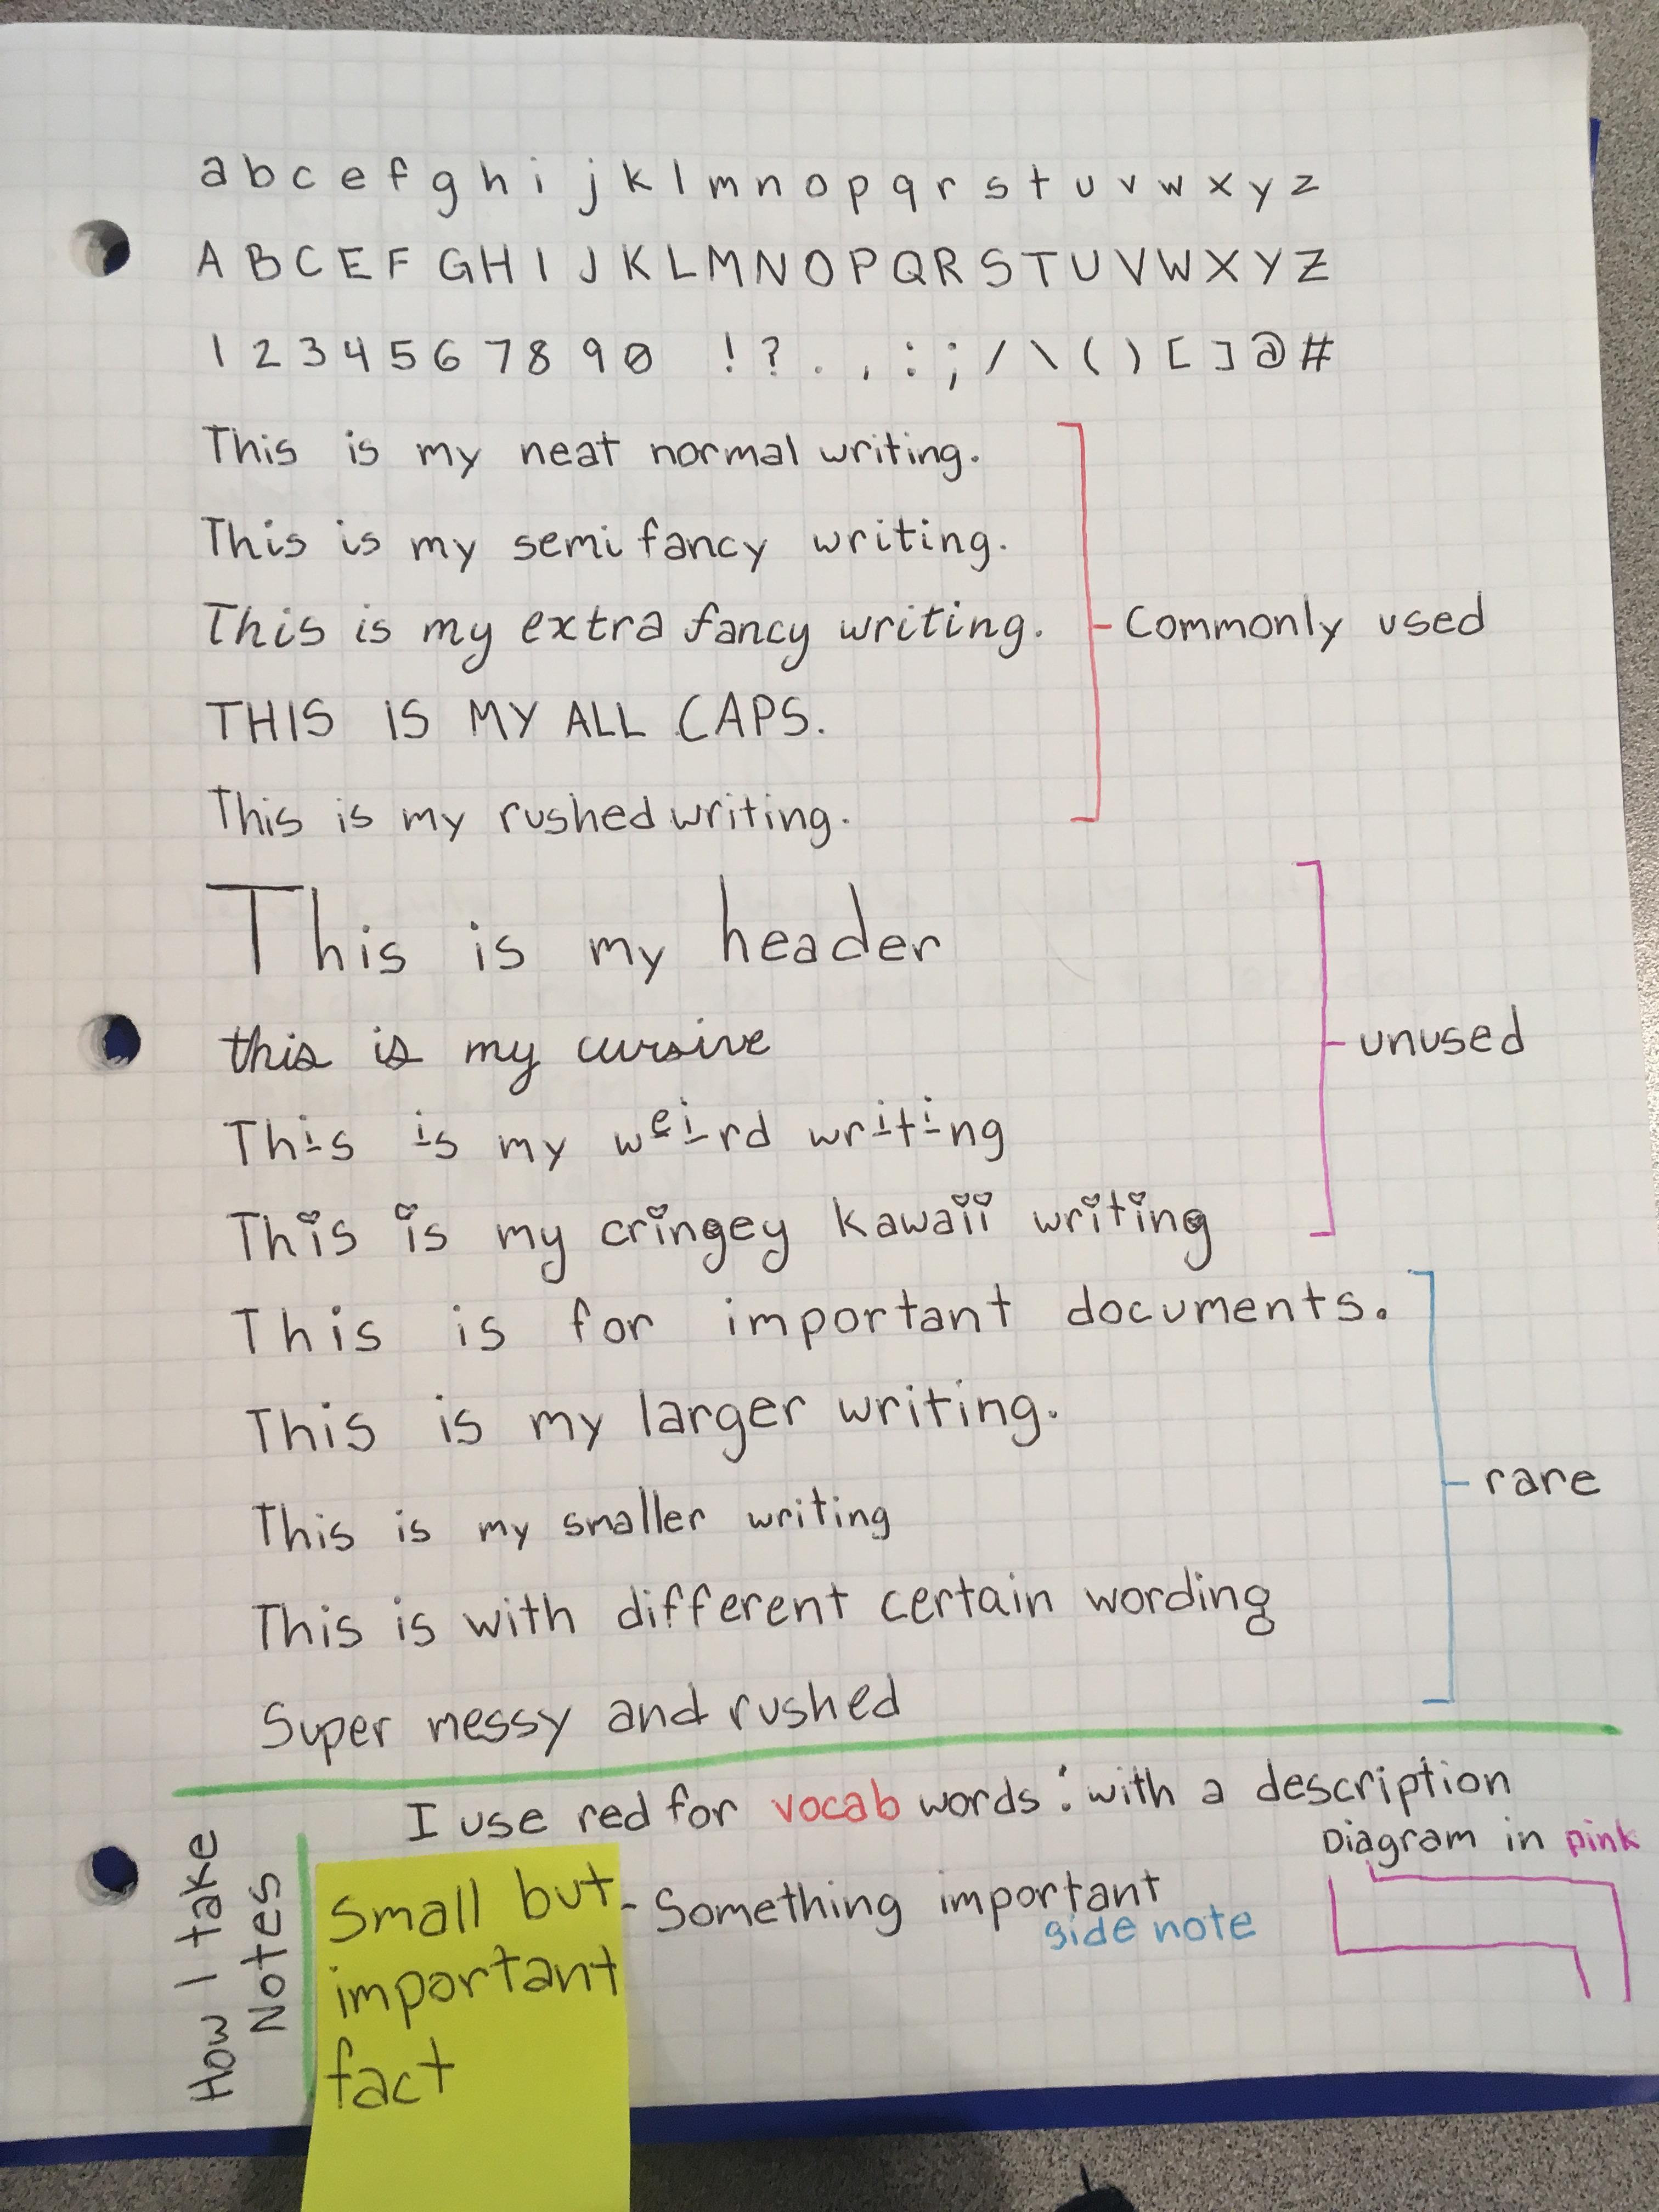 a b c e f g h i j k l m n o p q r s t u v w x y z
A B C E F G H I J K L M N O P Q R S T U V W X Y Z
1 2 3 4 5 6 7 8 9 0 ! ? . , : ; / \ ( ) [ ] @ #
This is my neat normal writing.
This is my semi fancy writing.
This is my extra fancy writing.
Commonly used
THIS IS MY ALL CAPS.
This is my rushed writing.
This is my header
this is my cursive
unused
This is my weird writing
This is my cringey kawaii writing
This is for important documents.
This is my larger writing.
rare
This is my smaller writing
This is with different certain wording
Super messy and rushed
How I take
Notes
I use red for vocab words: with a description
Small but
important
fact
- Something important
side note
Diagram in pink